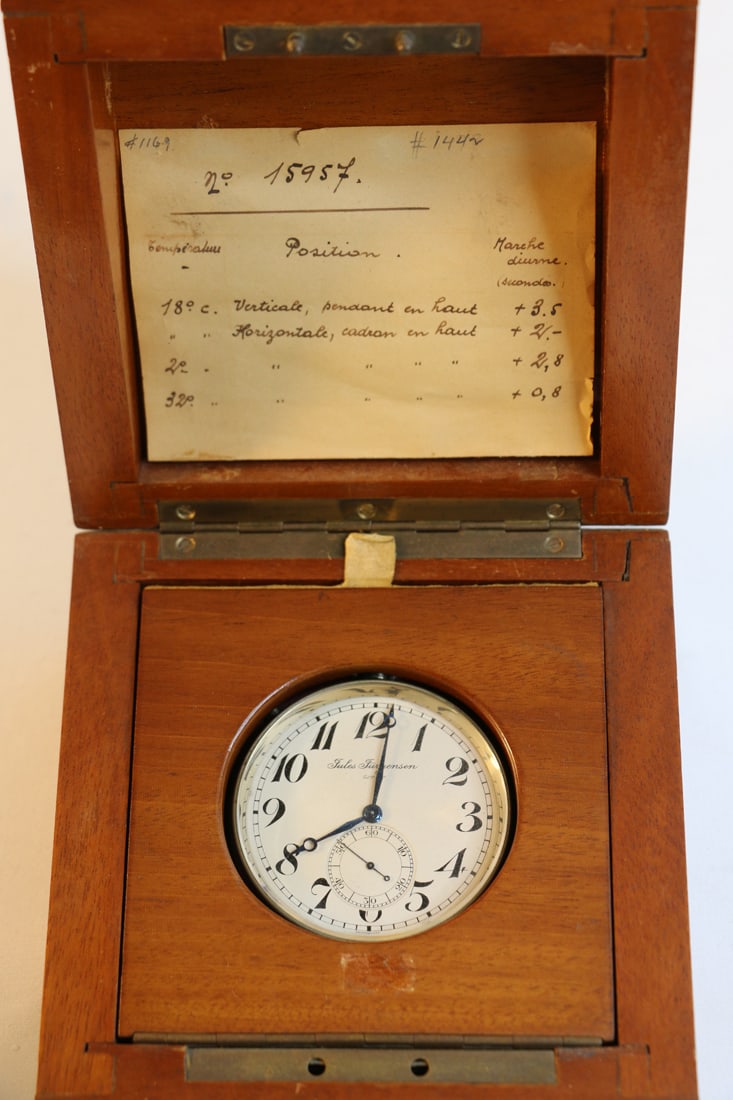 #1169 #1442
No 15957.
Température Position. Marche diurne.
(secondes.)
18° c. Verticale, pendant en haut + 3.5
" " Horizontale, cadran en haut + 2.-
2° " " " " " + 2,8
32° " " " " " + 0,8
12
11 1
Jules Jürgensen
10 2
9 3
8 4
7 5
6
60
10
20
30
40
50